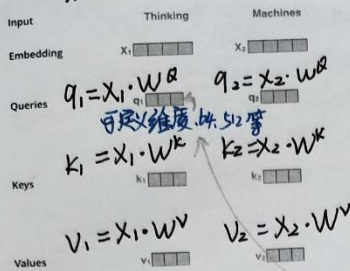 Input Thinking Machines
Embedding X₁ X₂
q₁=X₁·W^Q q₂=X₂·W^Q
Queries q₁ q₂
可定义维度,64.512等
K₁=X₁·W^K K₂=X₂·W^K
Keys k₁ k₂
V₁=X₁·W^V V₂=X₂·W^V
Values V₁ V₂